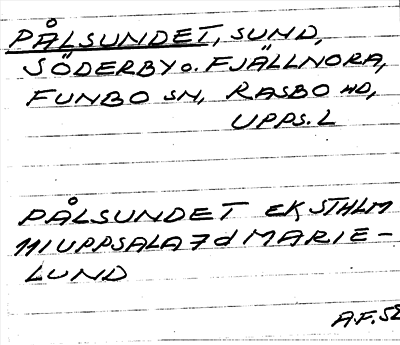 PÅLSUNDET, SUND,
SÖDERBY o. FJÄLLNORA,
FUNBO SN, RASBO HD,
UPPS. L
PÅLSUNDET EK STHLM
111 UPPSALA 7 d MARIE-
LUND
A.F.